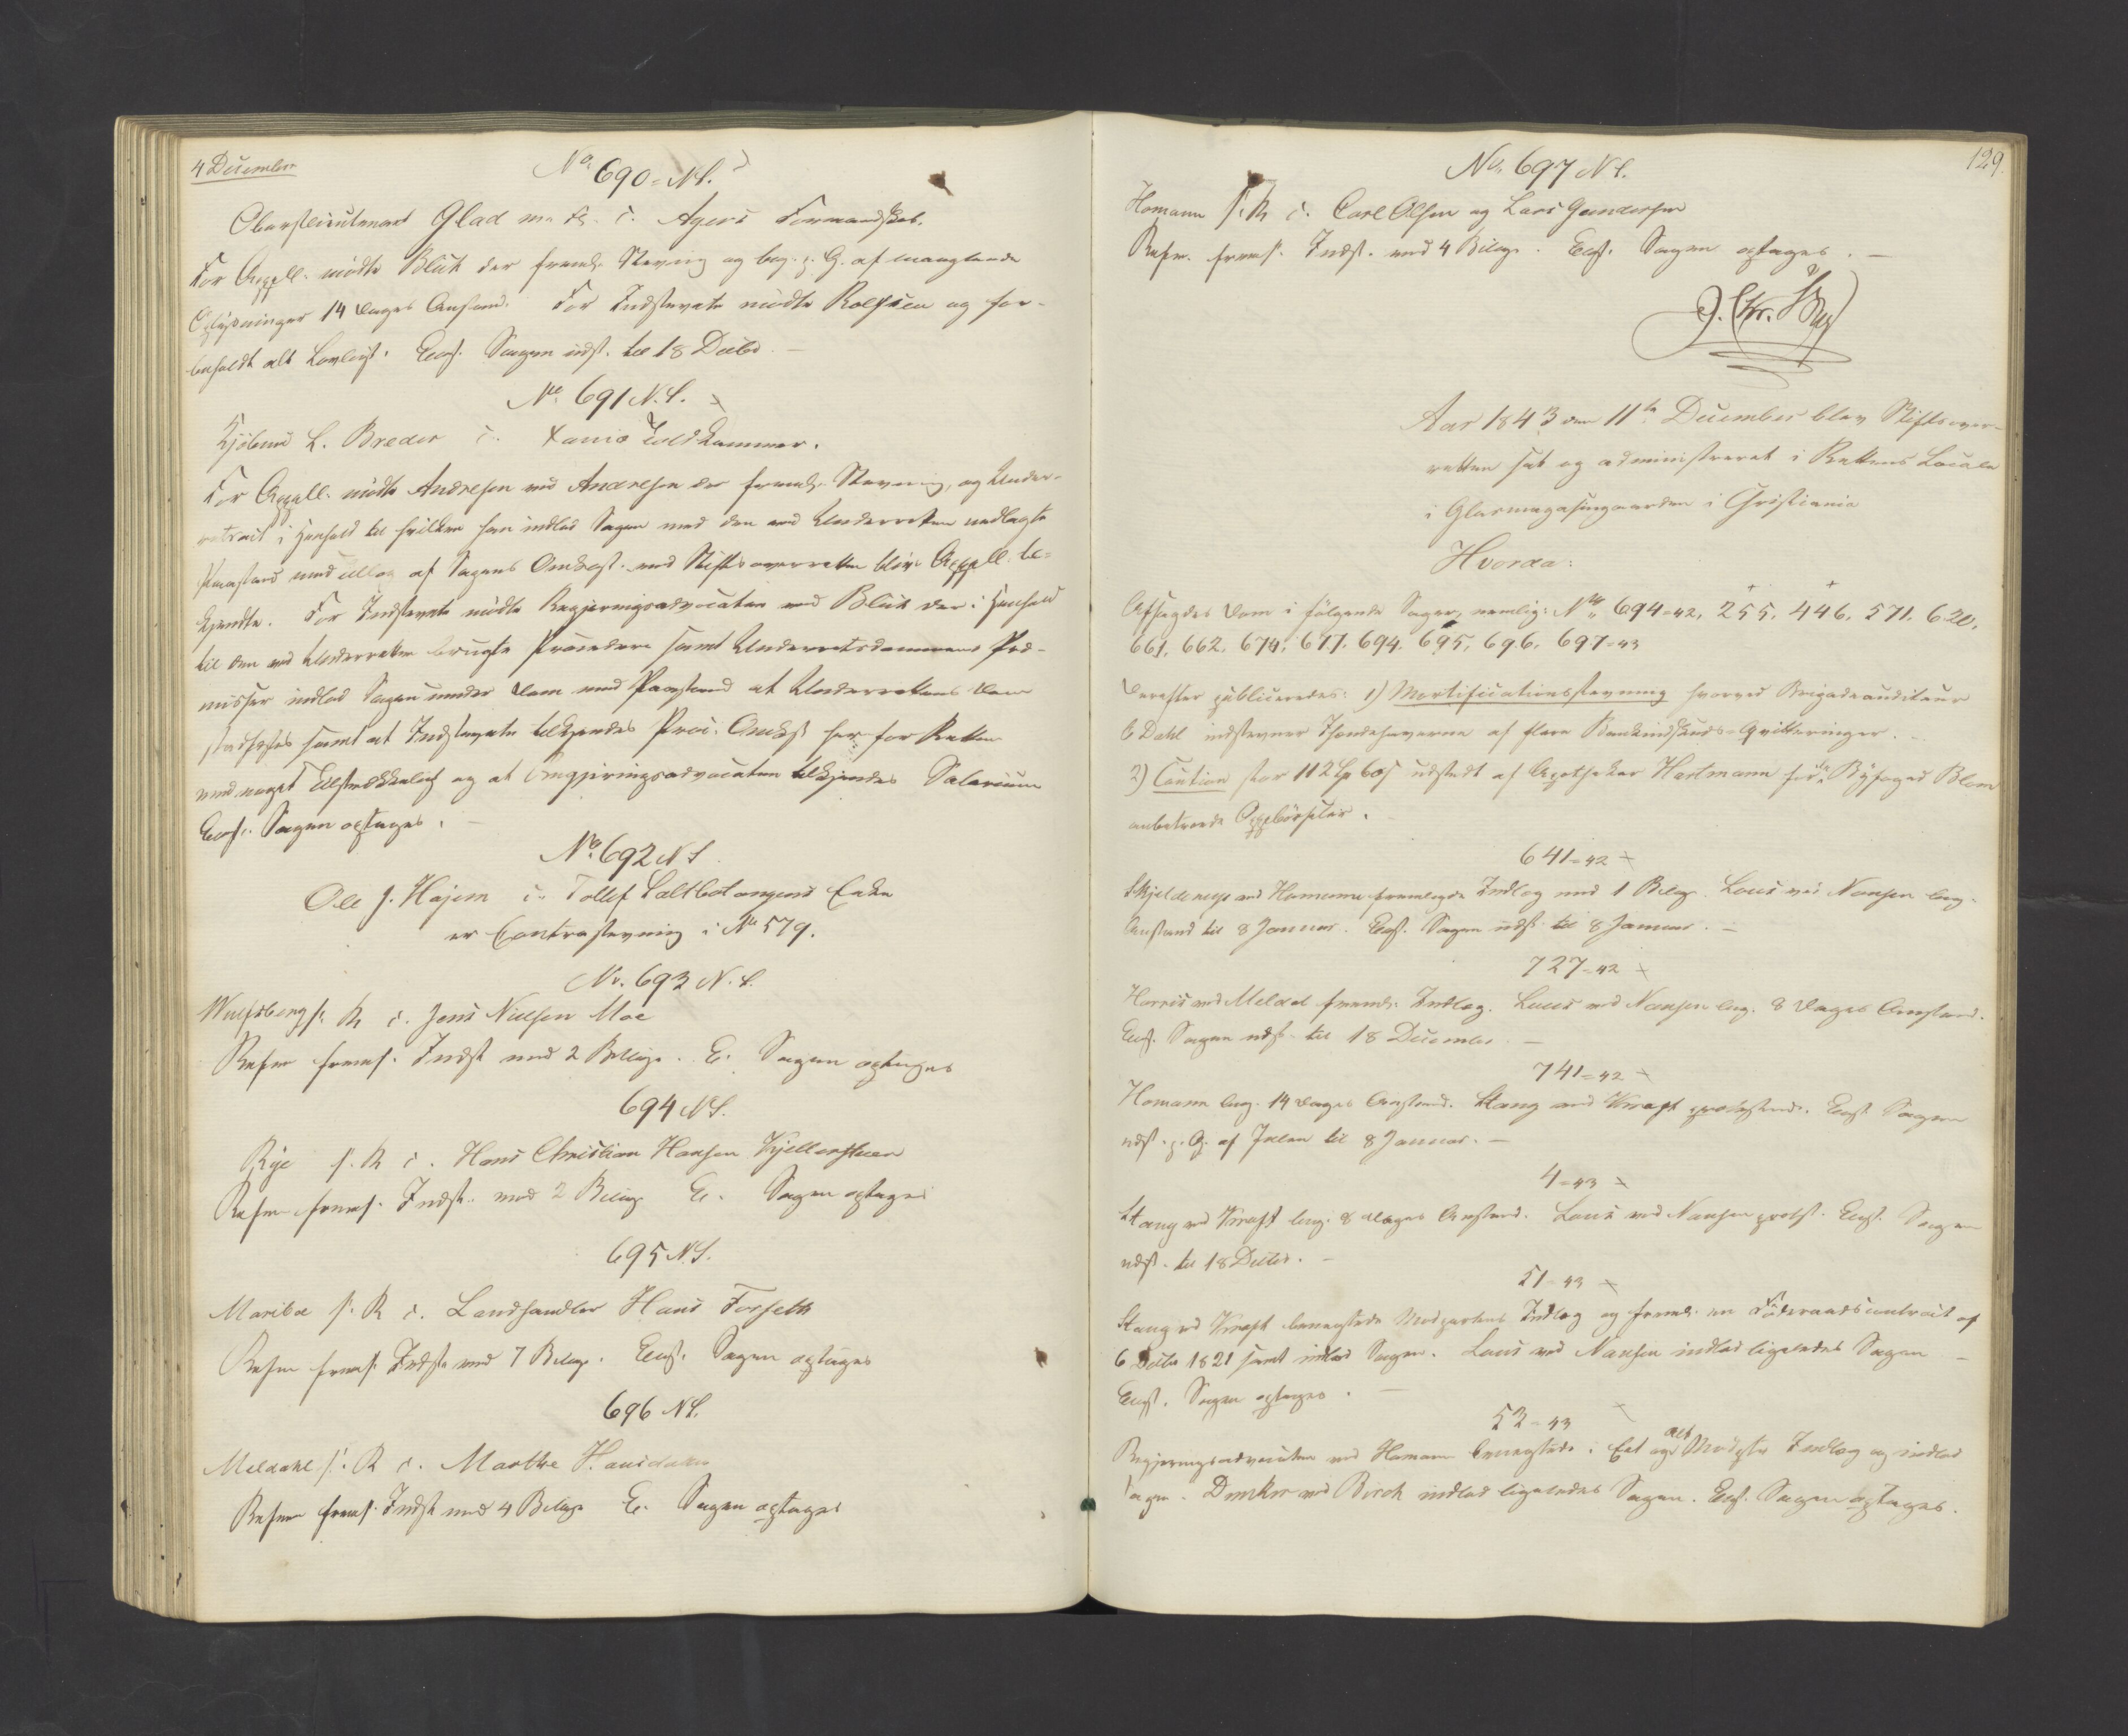 4 December
No 690 N. S.
Oberstlieutenant Glad m. fl. c. Agers Formandskab.
For Appell. mödte Blich der freml. Stevning og beg. p. G. af manglende
Oplysninger 14 Dages Anstand. For Indstevnte mödte Rolfsen og for-
beholdt alt Lovligt. Eragt. Sagen uds. til 18 Decbr. —
No 691 N. S.
Kjöbmd L. Breder c. Toldkammer.
For Appell. mödte Andresen ved Andresen der freml. Stevning, og Under-
i Henhold til hvilken han indlod Sagen med den ved Underretten nedlagte
Paastand med Tillæg af Sagens Omkost. ved Stiftsoverretten blive Appell. til-
kjendte. For Indstevnte mödte Regjeringsadvocaten ved Blich der i Henhold
til den ved Underretten brugte Procedure samt Underretsdommens Præ-
misser indlod Sagen under Dom med Paastand at Underrettens Dom
stadfæstes samt at Indstevnte tilkjendes Proc. Omkost. her for Retten
med noget Tilstrækkeligt og at Regjeringsadvocaten tilkjendes Salarium
Eragt. Sagen optages. —
No 692 N S.
Ole J. Hajem c. Tollef Saltbotangens Enke
er Contrastevning i No 579.
No. 693 N. S.
Wulfsberg s. R c. Jens Nielsen Moe
Refr. frems. Indst. med 2 Bilage. E. Sagen optages
694 N S.
Rye s. R c. Hans Christian Hansen Kjellerstuen
Refr. frems. Indst. med 2 Bilage E. Sagen optages
695 N. S.
Mariboe s. R c. Landhandler Hans Forseth
Refr. frems. Indst. med 7 Bilage. Eragt. Sagen optages
696 N S.
Meldahl s. R c. Marthe Hansdatter
Refr. frems. Indst. med 4 Bilage E. Sagen optages
129.
No. 697 N S.
Homann s. R c. Carl Olsen og Lars Gundersen
Refr. frems. Indst. med 4 Bilage. Eragt. Sagen optages. —
J. Chr. Berg
Aar 1843 den 11te December blev Stiftsover-
retten sat og administreret i Rettens Locale
i Glasmagasingaarden i Christiania
Hvorda:
Afsagdes Dom i følgende Sager, nemlig: No 694-42, 255, 446, 571, 620,
661, 662, 670, 677, 694, 695, 696, 697-43
Derefter publiceredes: 1) Mortificationsstevning hvorved Brigadeauditeur
C Dahl indstevner Ihændehaverne af flere Bankindskuds-Qvitteringer. —
2) Caution stor 112 Sp 60 s udstedt af Apotheker Hartmann for Byfoged Blom
anbetroede Oppebörseler.
641-42
Skjelderup ved Homann fremlagde Indlæg med 1 Bilag. Lous ved Nansen beg.
Anstand til 8 Januar. Eragt. Sagen uds. til 8 Januar. —
727-42
Harris ved Meldal freml. Indlæg. Lous ved Nansen beg. 8 Dages Anstand.
Eragt. Sagen uds. til 18 December. —
741-42
Homann beg. 14 Dages Anstand. Stang ved Kraft protesterede. Eragt. Sagen
uds. p. G. af Julen til 8 Januar. —
4-43
Stang ved Kraft beg. 8 Dages Anstand. Lous ved Nansen protest. Eragt. Sagen
uds. til 18 Decbr. —
51-43
Stang ved Kraft benægtede Modpartens Indlæg og freml. en Föderaadscontract af
6 Decbr 1821 samt indlod Sagen. Lous ved Nansen indlod ligeledes Sagen —
Eragt. Sagen optages. —
52-43
Regjeringsadvocaten ved Homann benægtede i Eet og alt Modpts Indlæg og indlod
Sagen. Dunker ved Birch indlod ligeledes Sagen. Eragt. Sagen optages.